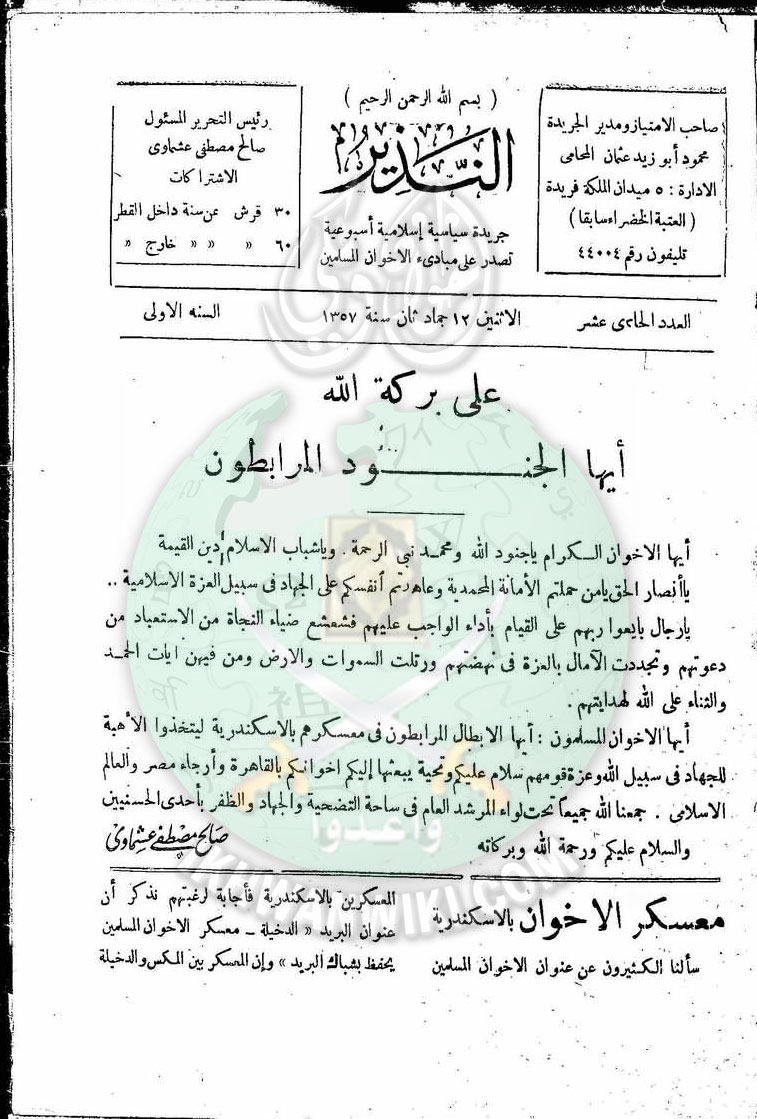 ( بسم الله الرحمن الرحيم )
النذير
جريدة سياسية إسلامية أسبوعية
تصدر على مبادىء الاخوان المسلمين
صاحب الامتياز ومدير الجريدة
محمود أبو زيد عثمان المحامى
الادارة : ٥ ميدان الملكة فريدة
( العتبة الخضراء سابقا )
تليفون رقم ٤٤٠٠٤
رئيس التحرير المسئول
صالح مصطفى عشماوى
الاشتراكات
٣٠ قرش عن سنة داخل القطر
٦٠ » » » خارج »
العدد الحادى عشر
الاثنين ١٢ جماد ثان سنة ١٣٥٧
السنه الاولى
على بركة الله
أيها الجنود المرابطون
أيها الاخوان الكرام ياجنود الله ومحمد نبى الرحمة . وياشباب الاسلام دين القيمة
ياأنصار الحق يامن حملتم الأمانة المحمدية وعاهدتم أنفسكم على الجهاد فى سبيل العزة الاسلامية ..
يارجال بايعوا ربهم على القيام بأداء الواجب عليهم فشعشع ضياء النجاة من الاستعباد من
دعوتهم وتجددت الآمال بالعزة فى نهضتهم ورتلت السموات والارض ومن فيهن ايات الحمد
والثناء على الله لهدايتهم .
أيها الاخوان المسلمون : أيها الابطال المرابطون فى معسكرهم بالاسكندرية ليتخذوا الاهبة
للجهاد فى سبيل الله وعزة قومهم سلام عليكم وتحية يبعثها إليكم اخوانكم بالقاهرة وأرجاء مصر والعالم
الاسلامى . جمعنا الله جميعاً تحت لواء المرشد العام فى ساحة التضحية والجهاد والظفر بأحدى الحسنيين
والسلام عليكم ورحمة الله وبركاته
صالح مصطفى عشماوى
معسكر الاخوان بالاسكندرية
سألنا الكثيرون عن عنوان الاخوان المسلمين
المعسكرين بالاسكندرية فأجابة لرغبتهم نذكر أن
عنوان البريد « الدخيلة ـ معسكر الاخوان المسلمين
يحفظ بشباك البريد » وإن المعسكر بين المكس والدخيلة
وأعدوا
IKHWANWIKI.COM